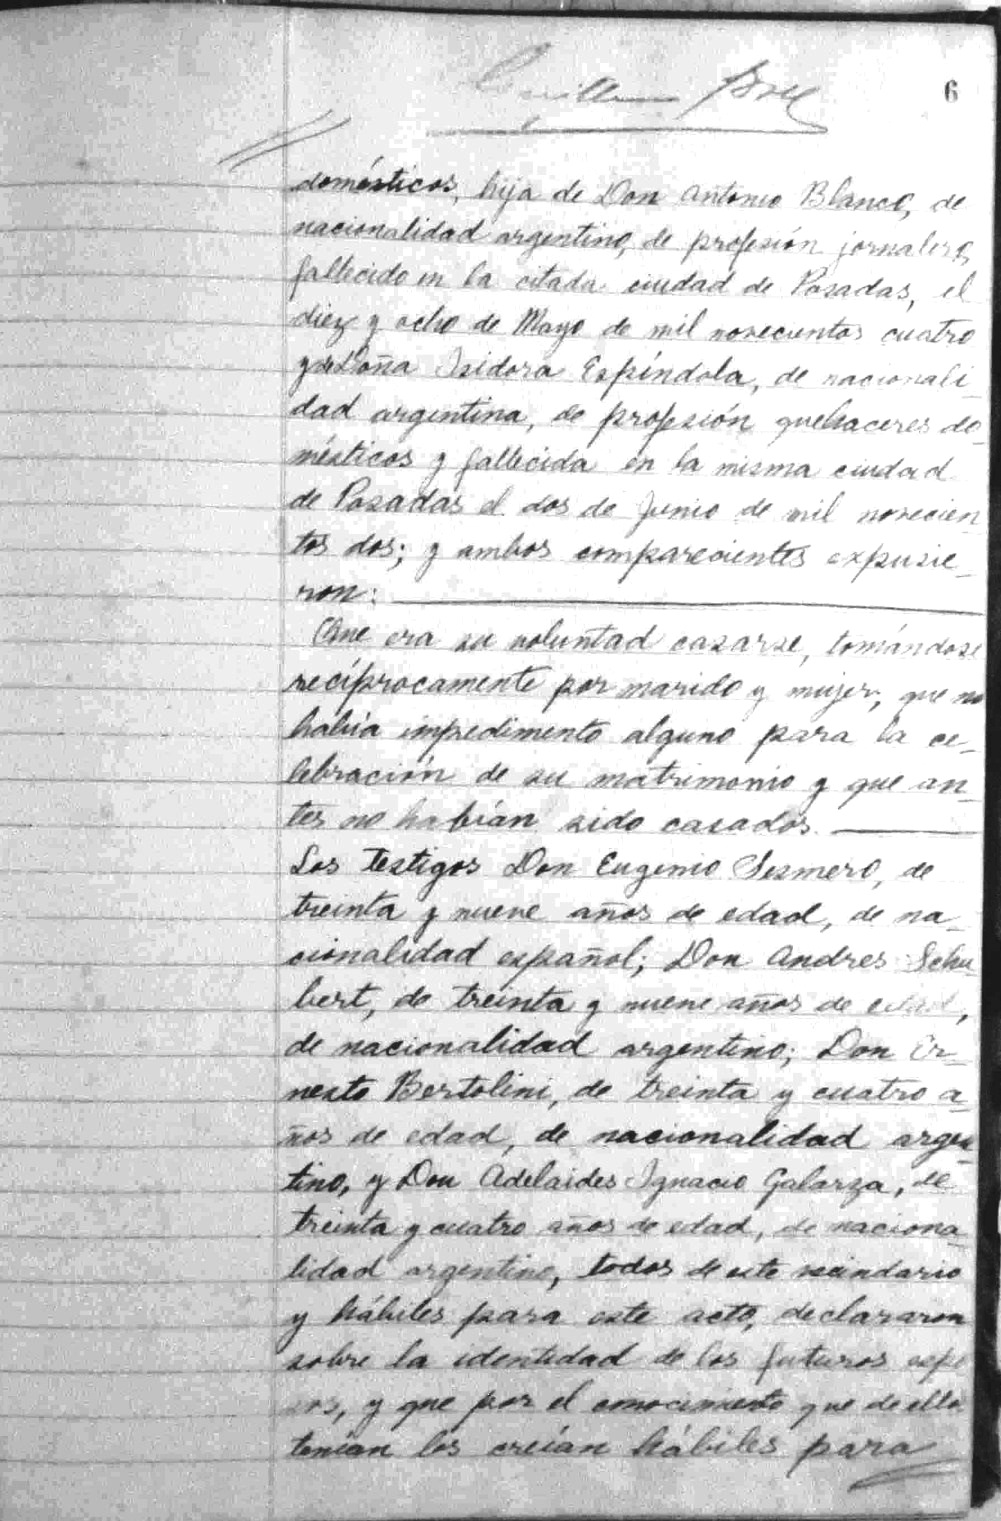 6
domésticos, hija de Don Antonio Blanco, de
nacionalidad argentino, de profesión jornalero,
fallecido en la citada ciudad de Posadas, el
diez y ocho de Mayo de mil novecientos cuatro
y de Doña Isidora Espíndola, de nacionali_
dad argentina, de profesión quehaceres do_
mésticos y fallecida en la misma ciudad
de Posadas el dos de Junio de mil novecien_
tos dos; y ambos comparecientes expusie_
ron:
Que era su voluntad casarse, tomándose
recíprocamente por marido y mujer, que no
había impedimento alguno para la ce_
lebración de su matrimonio y que an_
tes no habían sido casados.
Los testigos Don Eugenio Sesmero, de
treinta y nueve años de edad, de na_
cionalidad español; Don Andres Schu
bert, de treinta y nueve años de edad,
de nacionalidad argentino; Don Er_
nesto Bertolini, de treinta y cuatro a_
ños de edad, de nacionalidad argen_
tino, y Don Adelaides Ignacio Galarza, de
treinta y cuatro años de edad, de naciona_
lidad argentino, todos de este vecindario
y hábiles para este acto, declararon
sobre la identidad de los futuros espo
sos, y que por el conocimiento que de ellos
tenían los creían hábiles para